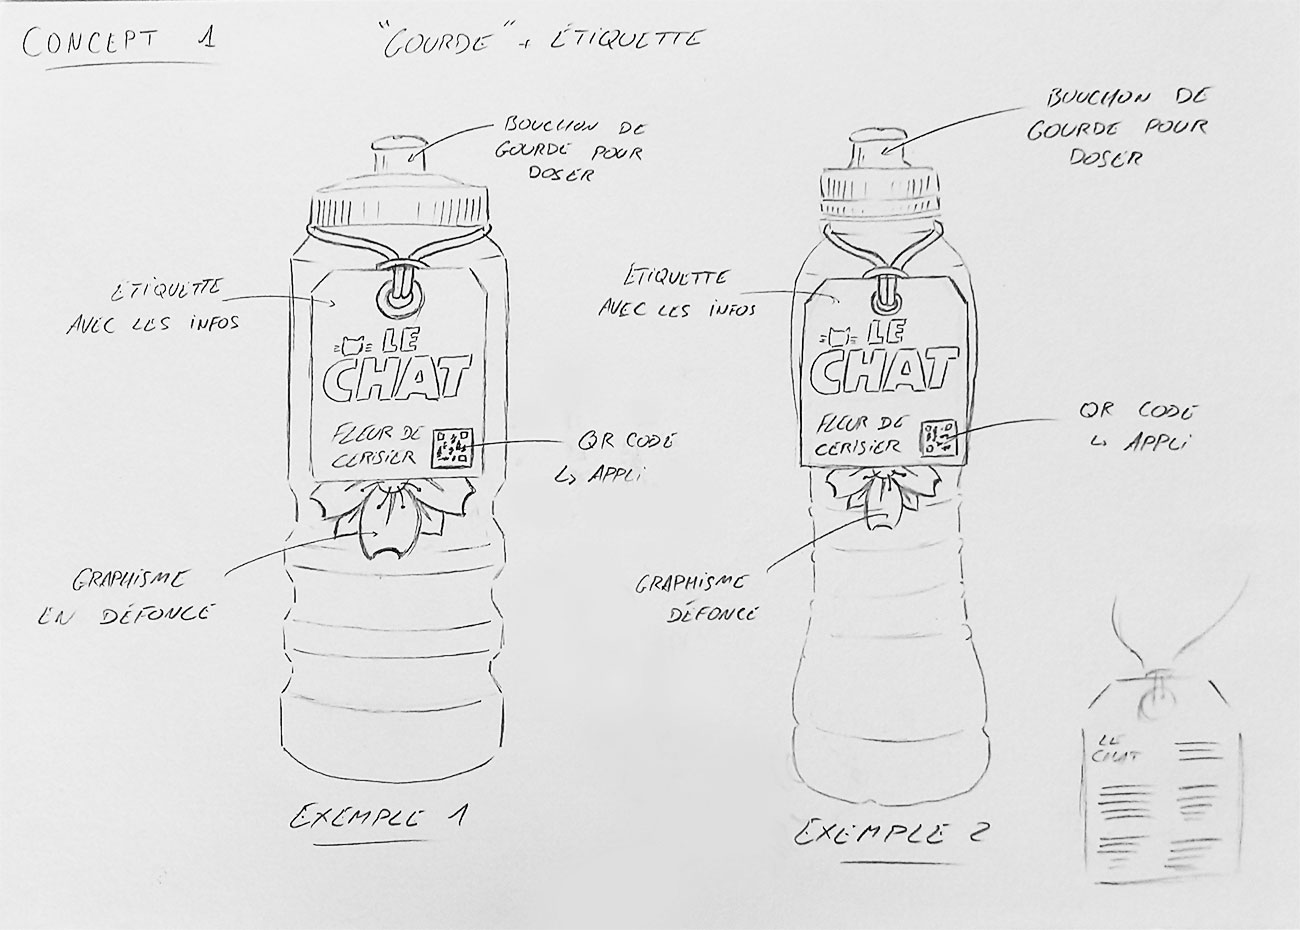 CONCEPT 1
"GOURDE" + ÉTIQUETTE
BOUCHON DE
GOURDE POUR
DOSER
ÉTIQUETTE
AVEC LES INFOS
LE
CHAT
FLEUR DE
CERISIER
QR CODE
↳ APPLI
GRAPHISME
EN DÉFONCE
EXEMPLE 1
BOUCHON DE
GOURDE POUR
DOSER
ÉTIQUETTE
AVEC LES INFOS
LE
CHAT
FLEUR DE
CERISIER
QR CODE
↳ APPLI
GRAPHISME
DÉFONCE
EXEMPLE 2
LE
CHAT